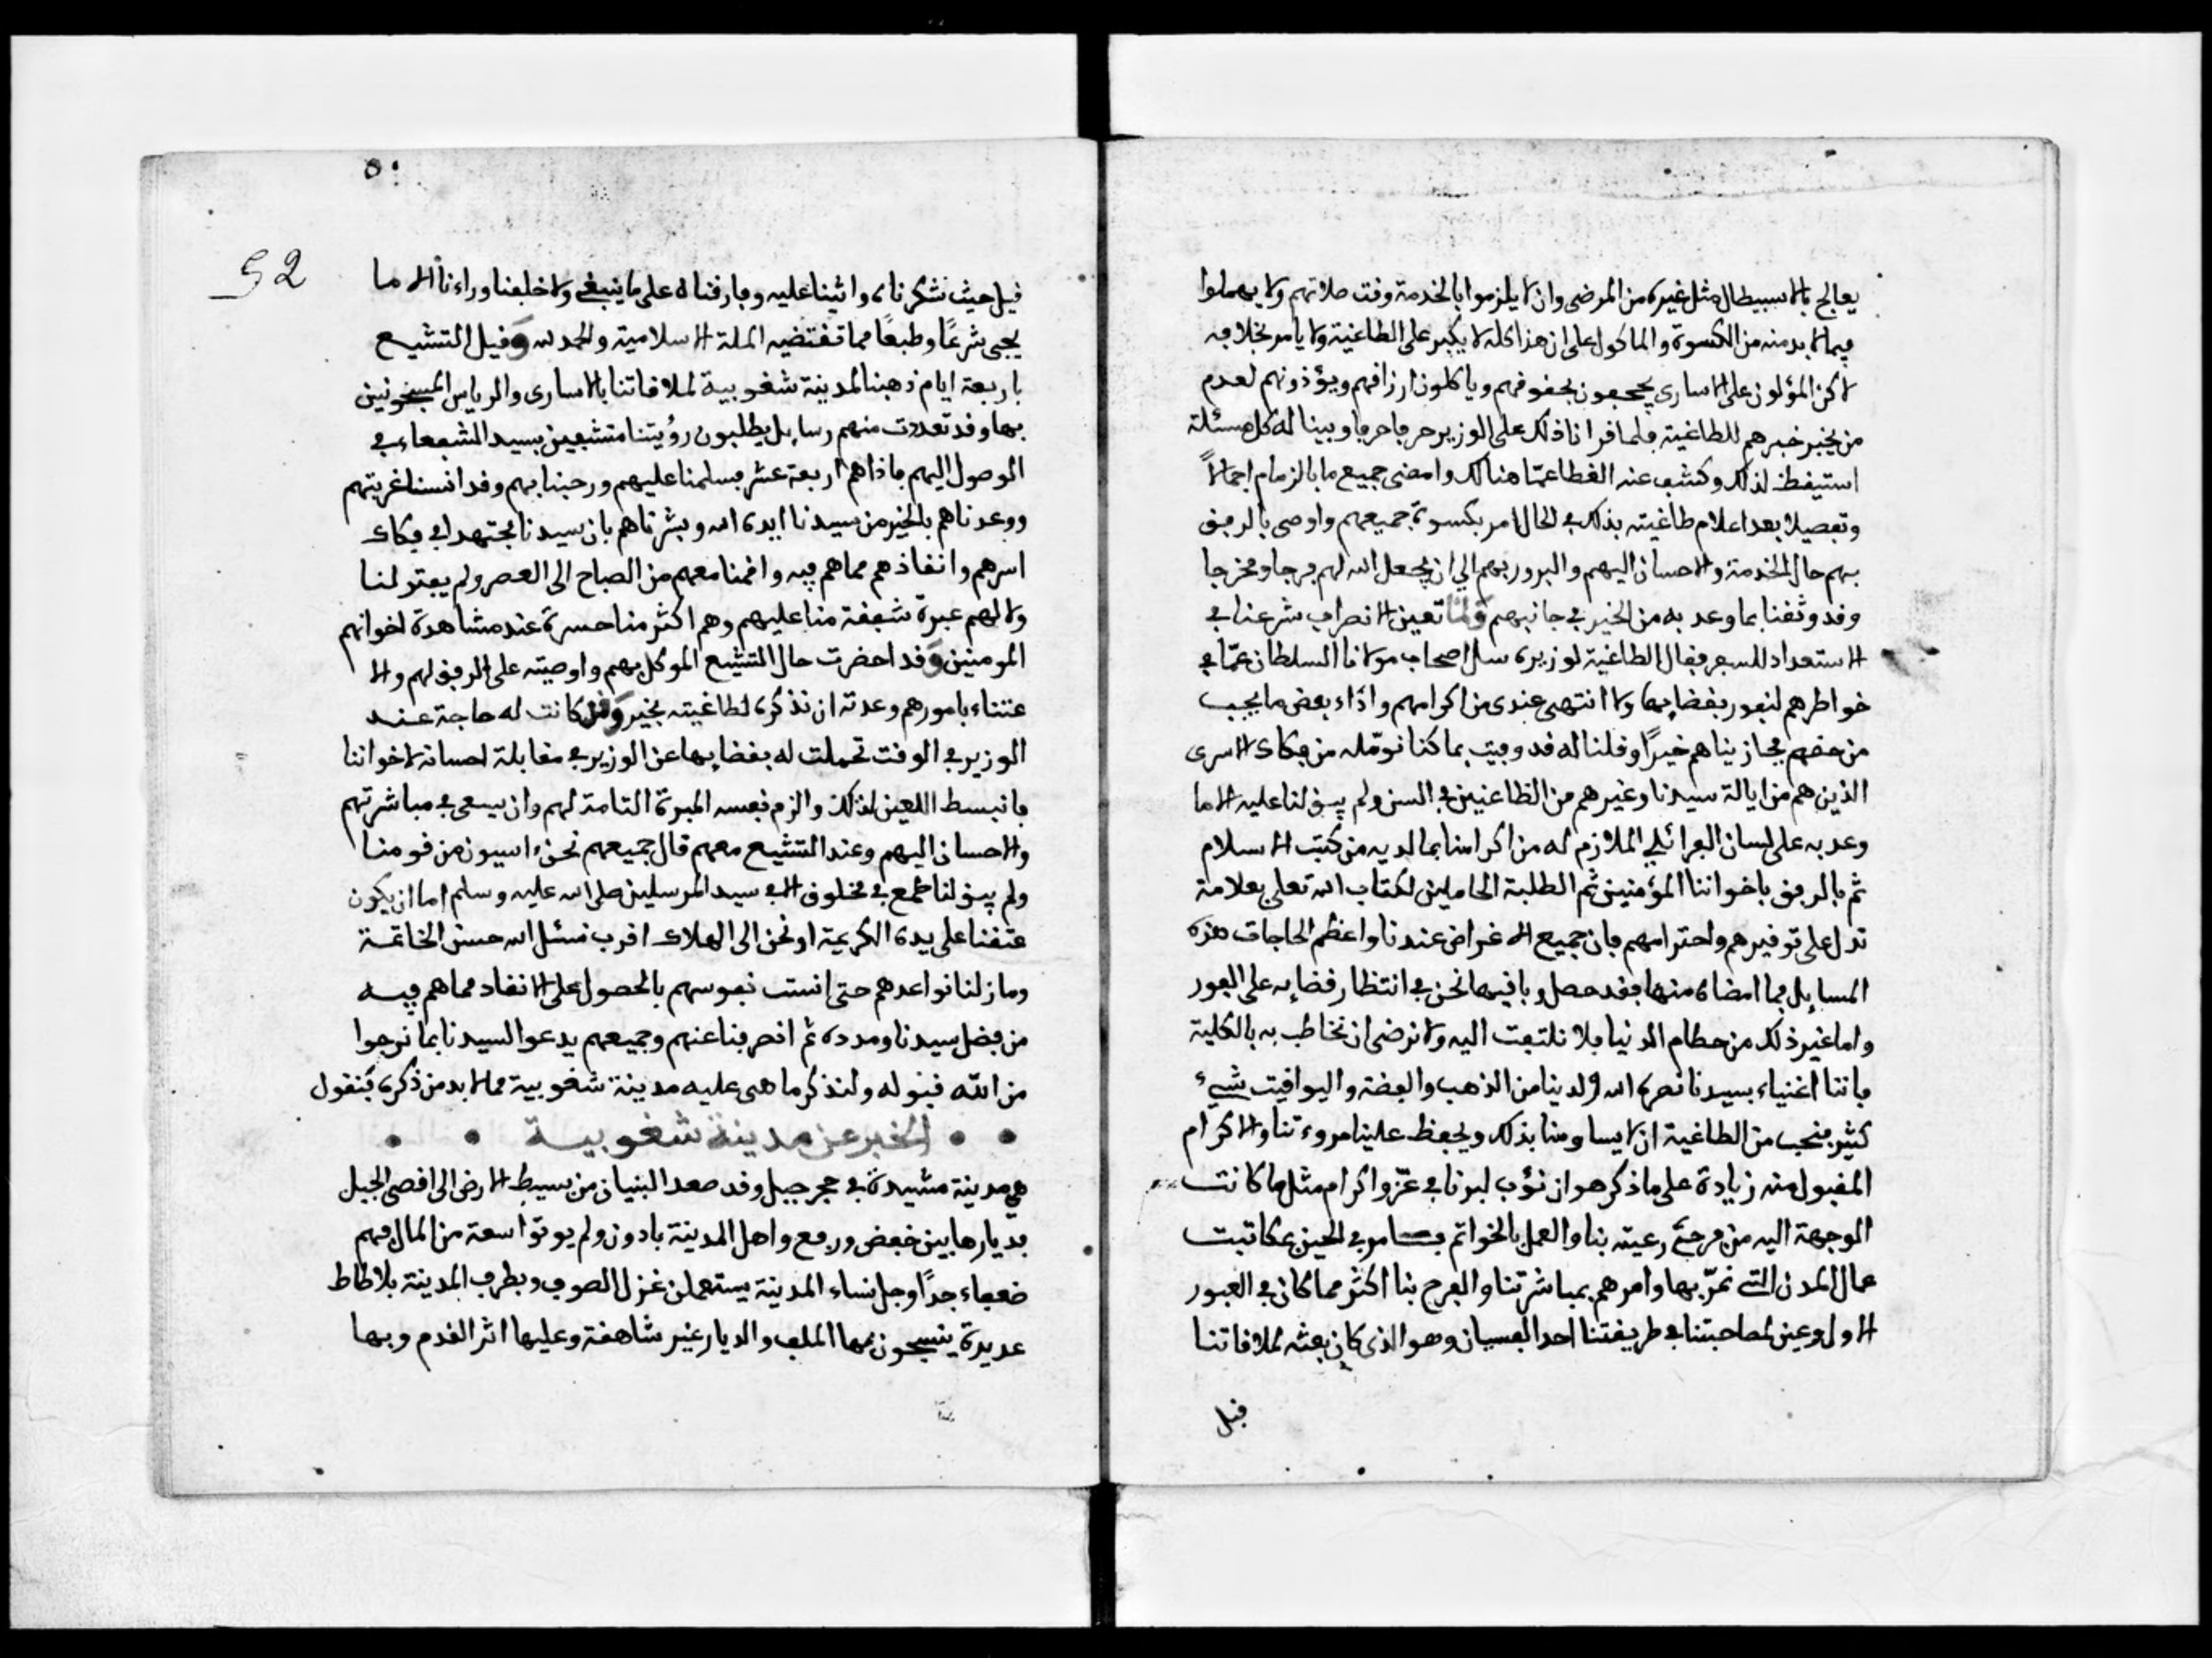 يعالج بالاسبيطال مثل غيره من المرضى وان لا يلزموا بالخدمة وقت صلاتهم ولا يهملوا
فيما لا بد منه من الكسوة والماكول على ان هذا كله لا يكبر على الطاغية ولا يامر بخلافه
لاكن المؤلون على الاسارى يجحفون بحقوقهم وياكلون ارزاقهم ويؤذونهم لعدم
من يخبر خبرهم للطاغية فلما قرانا ذلك على الوزير حرفا حرفا وبينا له كل مسئلة
استيقظ لذلك وكشف عنه الغطا عمّا هنالك وامضى جميع ما بالزمام اجمالاً
وتفصيلا بعد اعلام طاغيته بذلك في الحال امر بكسوة جميعهم واوصى بالرفق
بهم حال الخدمة والاحسان اليهم والبرور بهم الى ان يجعل الله لهم فرجا ومخرجا
وقد وثقنا بما وعد به من الخير في جانبهم ولما تعين الانصراف شرعنا في
الاستعداد للسفر فقال الطاغية لوزيره سل اصحاب مولانا السلطان عمّا في
خواطرهم لنفور بقضايها ولا انتهى عندى من اكرامهم واداء بعض ما يجب
من حقهم فجازيناهم خيرًا وقلنا له قد وفيت بما كنا نومّله من فكاك الاسرى
الذين هم من ايالة سيدنا وغيرهم من الطاعنين في السن ولم يبق لنا عليه الا ما
وعد به على لسان البرائلي الملازم له من اكرامنا بما لديه من كتب الاسلام
ثم بالرفق باخواننا المؤمنين ثم الطلبة الحاملين لكتاب الله تعلى بعلامة
تدل على توقيرهم واحترامهم فان جميع الاغراض عندنا واعظم الحاجات هذه
المسايل فما امضاه منها فقد حصل وباقيها نحن في انتظار قضايه على الفور
واما غير ذلك من حطام الدنيا فلا نلتفت اليه ولا نرضى ان نخاطب به بالكلية
فاننا اغنياء بسيدنا نصره الله ولدينا من الذهب والفضة واليواقيت شيء
كثير فنحب من الطاغية ان لا يساومنا بذلك ويحفظ علينا مروءتنا والاكرام
المقبول منه زيادة على ما ذكر هو ان نؤب لبرنا في عزّ واكرام مثل ما كانت
الموجهة اليه من فرح رعيته بنا والعمل بالخواتم فامر في الحين بمكاتبت
عمال المدن التي نمرّ بها وامرهم بمباشرتنا والفرح بنا اكثر مما كان في العبور
الاول وعين لمصاحبتنا في طريقتنا احد الفسيان وهو الذى كان بعثه لملاقاتنا
قبل
٥٠
52
قبل حيث شكرناه واثنينا عليه وفارقناه على ما ينبغي ولا خلفنا وراءنا الا ما
يجى شرعًا وطبعًا مما تقتضيه الملة الاسلامية والحمد لله وقبل التشييع
باربعة ايام ذهبنا لمدينة شغوبية لملاقاتنا بالاسارى والرياس المسجونين
بها وقد تعددت منهم رسايل يطلبون رؤيتنا متشفعين بسيد الشفعاء في
الوصول اليهم فاذا هم اربعة عشر فسلمنا عليهم ورحبنا بهم وقد انسنا غربتهم
ووعدناهم بالخير من سيدنا ايده الله وبشرناهم بان سيدنا مجتهدا في فكاك
اسرهم وانقاذهم مما هم فيه واقمنا معهم من الصباح الى العصر ولم يفتر لنا
ولا لهم عبرة شفقة منا عليهم وهم اكثر منا حسرة عند مشاهدة اخوانهم
المومنين وقد احضرت حال التشييع الموكل بهم واوصيته على الرفق لهم والا
عتناء بامورهم وعدته ان نذكره لطاغيته بخير وقد كانت له حاجة عند
الوزير في الوقت تحملت له بقضايها عن الوزير في مقابلة احسانه لاخواننا
فانبسط اللعين لذلك والزم نفسه المبرة التامة لهم وان يسعى في مباشرتهم
والاحسان اليهم وعند التشييع معهم قال جميعهم نحن ءايسون من قومنا
ولم يبق لنا طمع في مخلوق الا في سيد المرسلين صلى الله عليه وسلم اما ان يكون
عتقنا على يده الكريمة او نحن الى الهلاك اقرب نسئل الله حسن الخاتمة
وما زلنا نواعدهم حتى انست نفوسهم بالحصول على الانقاد مما هم فيه
من فضل سيدنا ومدده ثم انصرفنا عنهم وجميعهم يدعو لسيدنا بما نرجوا
من الله قبوله ولنذكر ما هى عليه مدينة شغوبية مما لا بد من ذكره فنقول
الخبر عن مدينة شغوبية
هي مدينة مشيدة في حجر جبل وقد صعد البنيان من بسيط الارض الى اقصى الجبل
فديارها بين خفض ورفع واهل المدينة بادون ولم يوتوا سعة من المال فهم
ضعفاء جدًا وجل نساء المدينة يستعملن غزل الصوف وبطرف المدينة بلاطاط
عديدة ينسجون بها الملف والديار غير شاهقة وعليها اثر القدم وبها